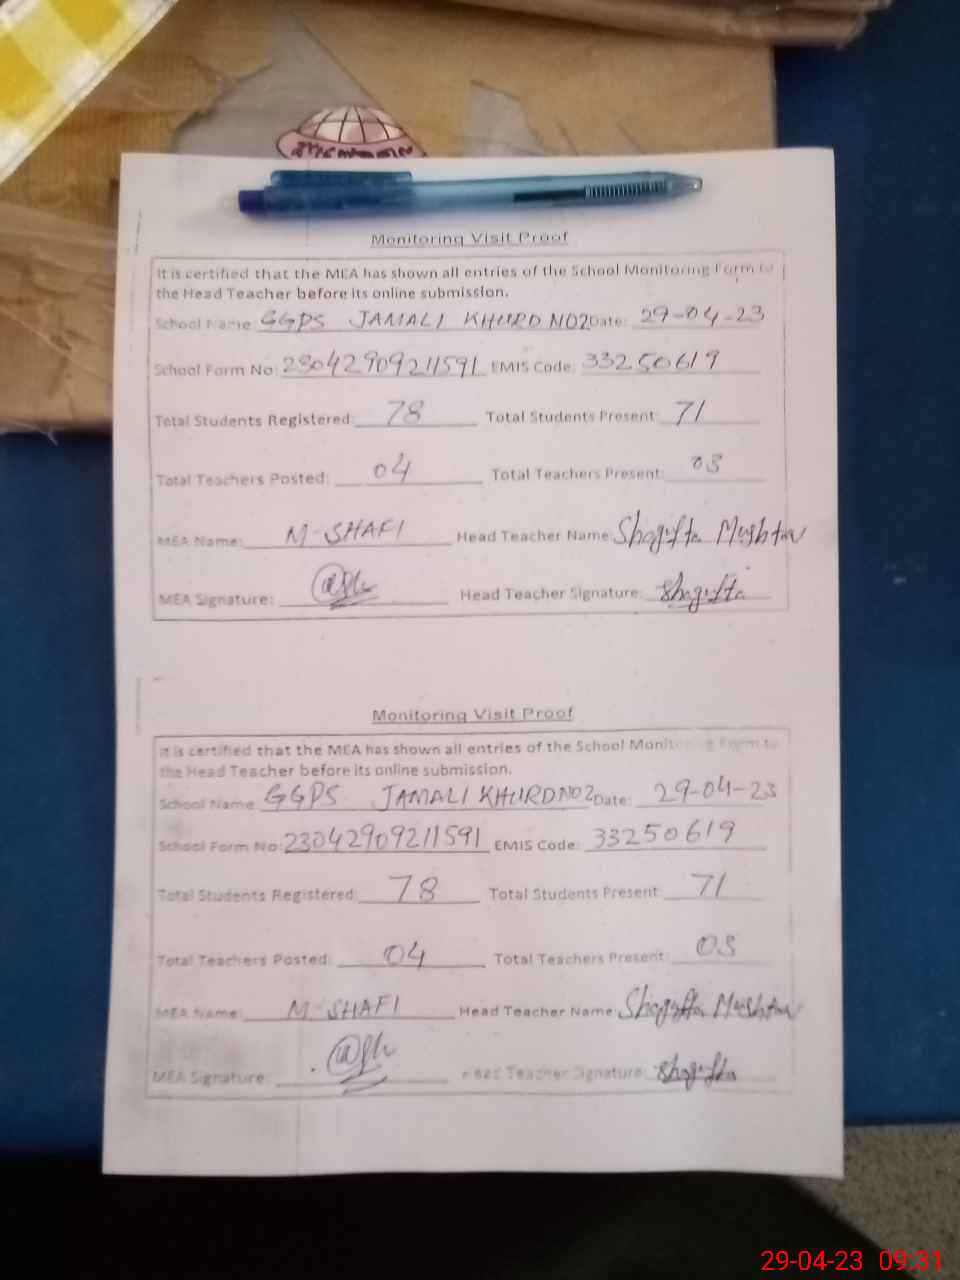 Monitoring Visit Proof
It is certified that the MEA has shown all entries of the School Monitoring Form to
the Head Teacher before its online submission.
School Name GGPS JAMALI KHURD NO2 Date: 29-04-23
School Form No: 23042909211591 EMIS Code: 33250619
Total Students Registered: 78 Total Students Present: 71
Total Teachers Posted: 04 Total Teachers Present: 03
MEA Name: M-SHAFI Head Teacher Name: Shagufta Mushtaq
MEA Signature: Head Teacher Signature: Shagufta
Monitoring Visit Proof
It is certified that the MEA has shown all entries of the School Monitoring Form to
the Head Teacher before its online submission.
School Name GGPS JAMALI KHURD NO2 Date: 29-04-23
School Form No: 23042909211591 EMIS Code: 33250619
Total Students Registered: 78 Total Students Present: 71
Total Teachers Posted: 04 Total Teachers Present: 03
MEA Name: M-SHAFI Head Teacher Name: Shagufta Mushtaq
MEA Signature: Head Teacher Signature: Shagufta
29-04-23 09:31